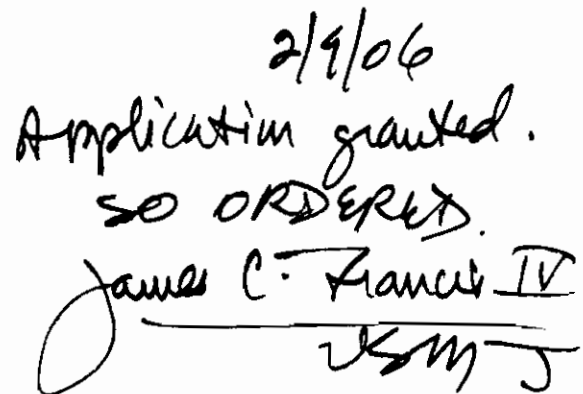 2/9/06
Application granted.
SO ORDERED.
James C. Francis IV
USMJ